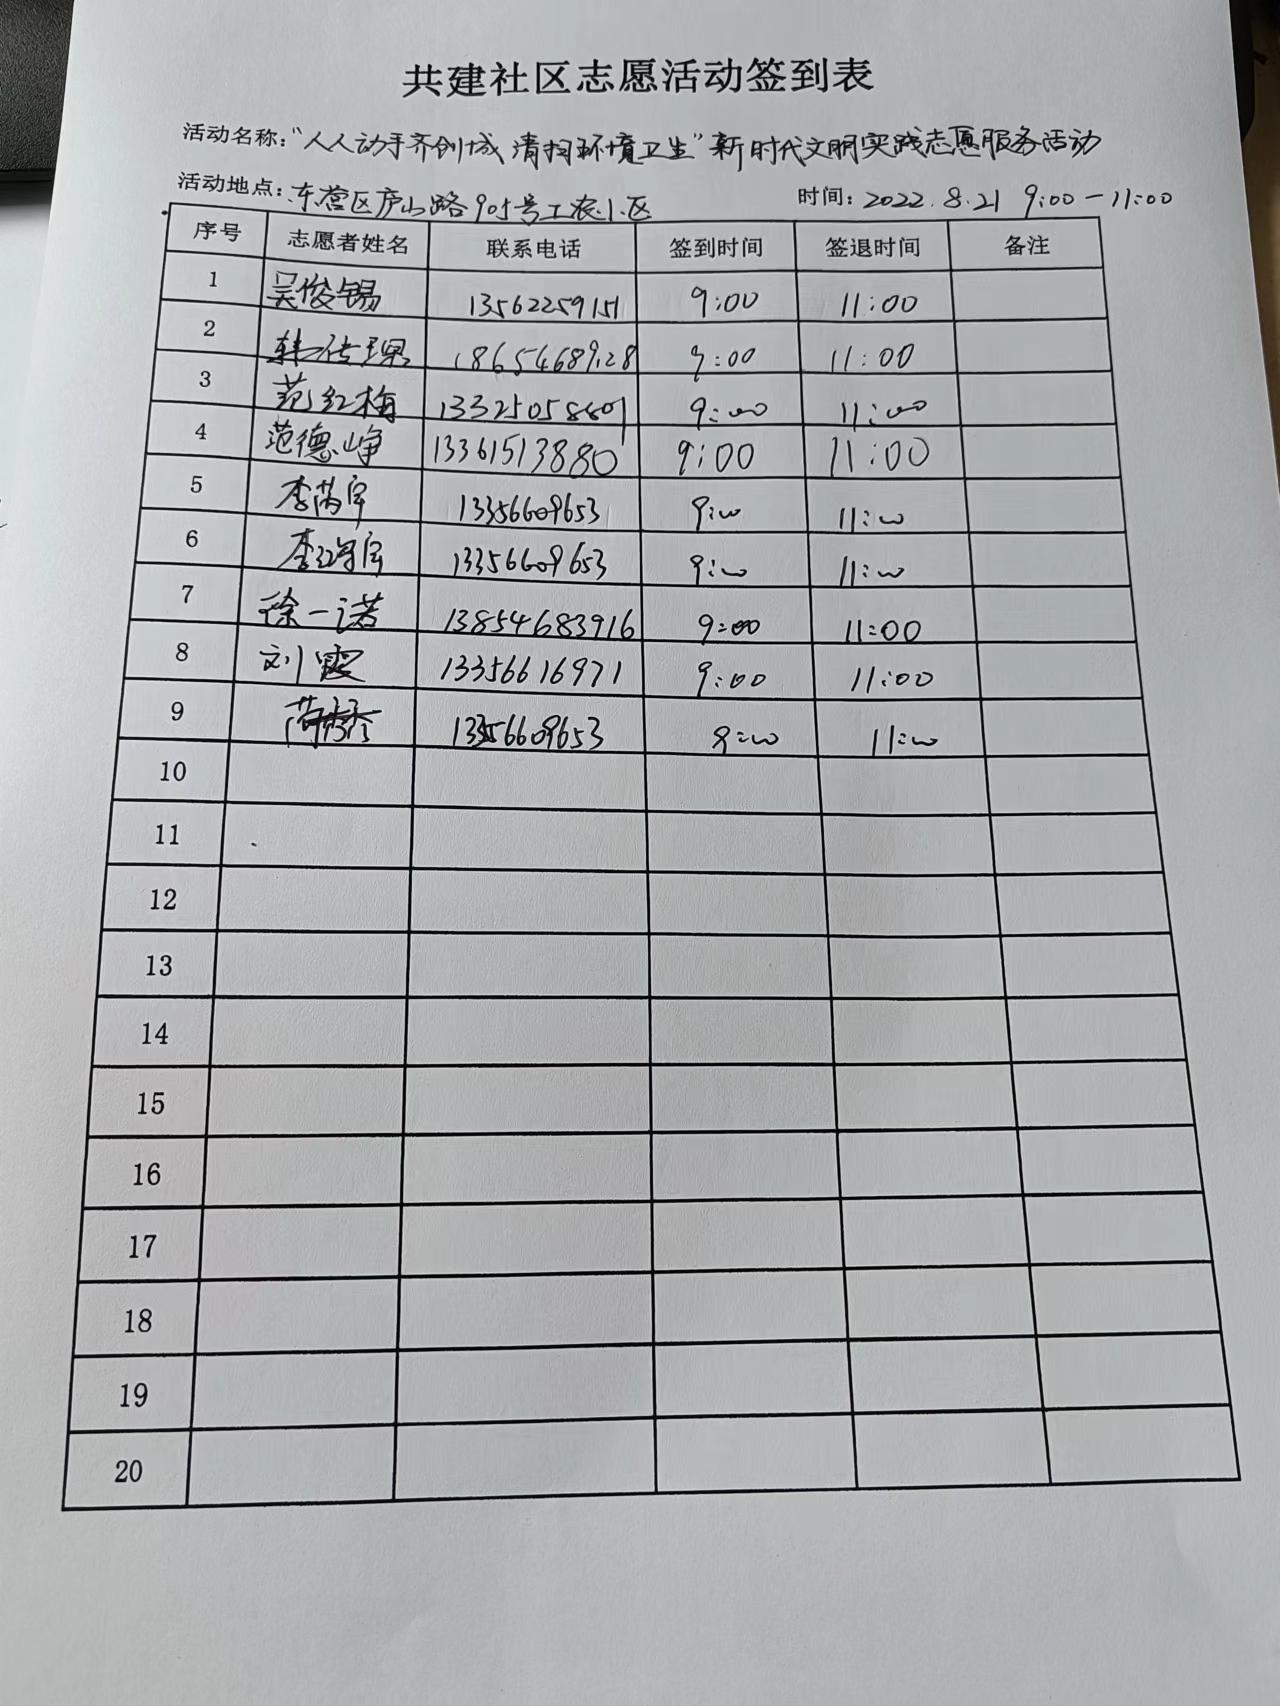 共建社区志愿活动签到表
活动名称："人人动手齐创城 清扫环境卫生"新时代文明实践志愿服务活动
活动地点：东营区庐山路905号工农小区 时间：2022.8.21 9:00-11:00
序号 志愿者姓名 联系电话 签到时间 签退时间 备注
1 吴俊锡 13562259151 9:00 11:00
2 9:00 11:00
3 范红梅 9:00 11:00
4 范德峥 13361513880 9:00 11:00
5 13356609653 9:00 11:00
6 13356609653 9:00 11:00
7 徐一诺 13854683916 9:00 11:00
8 刘霞 13356616971 9:00 11:00
9 13356609653 9:00 11:00
10
11
12
13
14
15
16
17
18
19
20